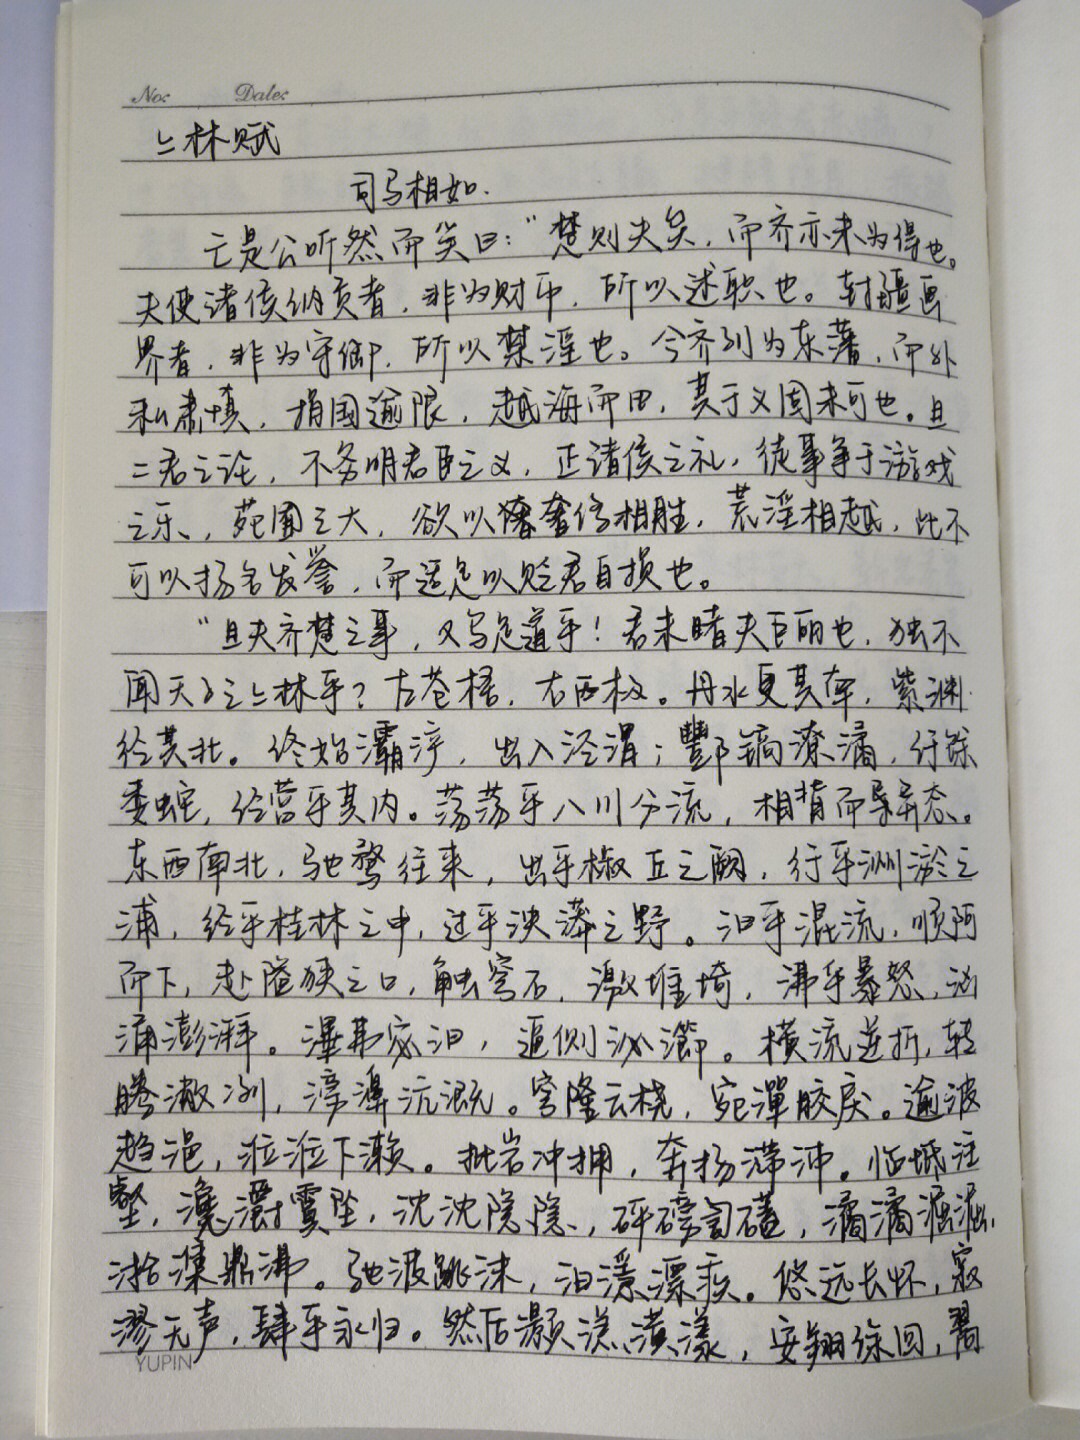 No: Date:
上林赋
司马相如.
亡是公听然而笑曰："楚则失矣，而齐亦未为得也。
夫使诸侯纳贡者，非为财币，所以述职也。封疆画
界者，非为守御，所以禁淫也。今齐列为东藩，而外
私肃慎，捐国逾限，越海而田，其于义固未可也。且
二君之论，不务明君臣之义，正诸侯之礼，徒事争于游戏
之乐、苑囿之大，欲以奢侈相胜，荒淫相越，此不
可以扬名发誉，而适足以贬君自损也。
"且夫齐楚之事，又乌足道乎！君未睹夫巨丽也，独不
闻天子之上林乎？左苍梧，右西极。丹水更其南，紫渊
径其北。终始灞浐，出入泾渭；酆镐潦潏，纡馀
委蛇，经营乎其内。荡荡乎八川分流，相背而异态。
东西南北，驰骛往来，出乎椒丘之阙，行乎洲淤之
浦，经乎桂林之中，过乎泱漭之野。汩乎混流，顺阿
而下，赴隘狭之口，触穹石，激堆埼，沸乎暴怒，汹
涌澎湃。滭弗宓汩，逼侧泌瀄。横流逆折，转
腾潎冽，滂濞沆溉。穹隆云桡，宛潬胶戾。逾波
趋浥，涖涖下濑。批岩冲拥，奔扬滞沛。临坻注
壑，瀺灂霣坠，沈沈隐隐，砰磅訇礚，潏潏淈淈，
湁潗鼎沸。驰波跳沫，汩㴔漂疾。悠远长怀，寂
漻无声，肆乎永归。然后灏溔潢漾，安翔徐回，翯
YUPIN